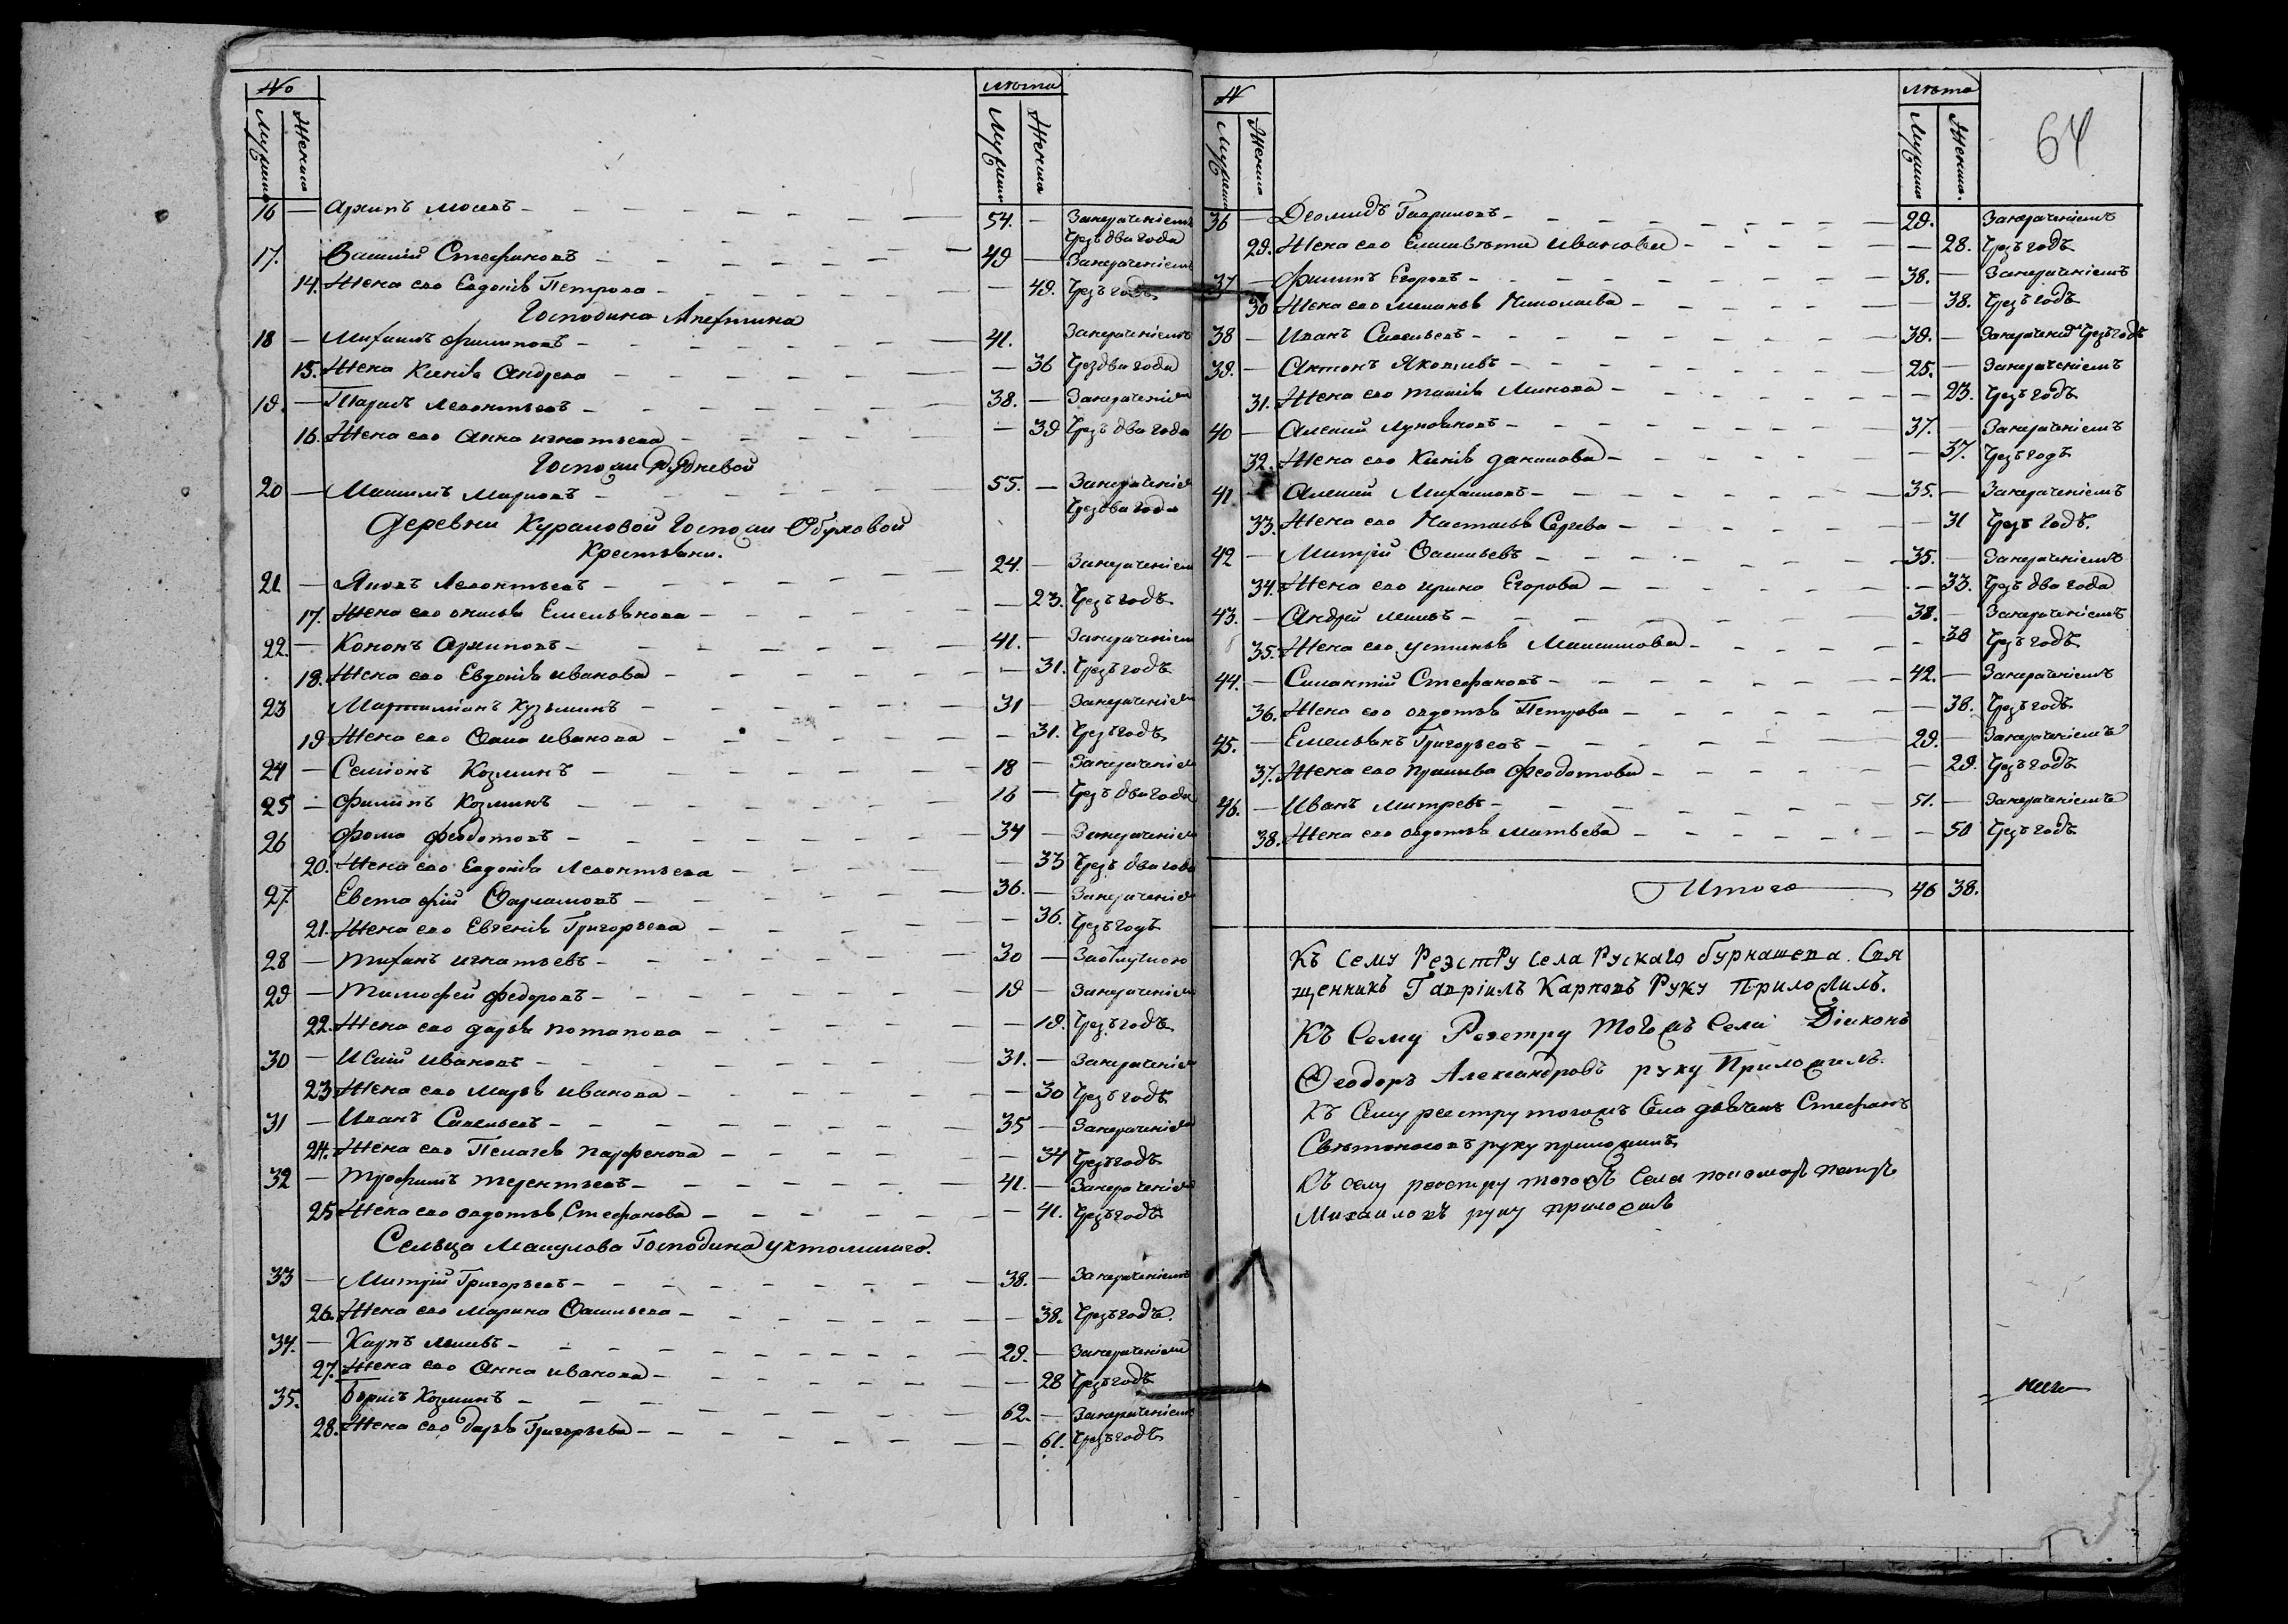 No
лѣта
Мужеска
Женска
Мужеска
Женска
16 — Архипъ — 54. — Занераченіемъ
Чрезъ два года
17. Василий Стефановъ — 49 — Занераченіемъ
14. Жена ево Евдокія Петрова — 49. Чрезъ годъ
Господина
18 — Михаилъ Филиповъ — 41. Занераченіемъ
15. Жена Ксенія Андрева — 36 Чрез два года
19. — Тарасъ Леонтьевъ — 38. — Занераченіем
16. Жена ево Анна игнатьева — 39 Чрезъ два года
Госпожи
20 — Максимъ Марковъ — 55. — Занераченіем
Чрез два года
Деревни Кураповой Госпожи Обуховой
Крестьяни.
21. — Яковъ Леонтьевъ — 24. — Занераченіем
17. Жена ево Емельянова — 23. Чрезъ годъ
22. — Кононъ Архиповъ — 41. — Занераченіем
18. Жена ево Евдокія иванова — 31. Чрезъ годъ
23 Мартиміянъ Кузьминъ — 31 — Занераченіем
19 Жена ево иванова — 31. Чрезъ годъ
24 — Семіонъ Козминъ — 18 — Занераченіем
25 — Филипъ Козминъ — 16 — Чрезъ два года
26 Фома Федотовъ — 34 — Занераченіем
20. Жена ево Евдокія Леонтьева — 33 Чрезъ два года
27. Евстафій Варламовъ — 36. — Занераченіем
21. Жена ево Евгенія Григорьева — 36. Чрезъ годъ
28 — Тихонъ игнатьевъ — 30 — Заотлучкою
29 — Тимофей Федоровъ — 19 — Занераченіем
22. Жена ево дарья потапова — 19. Чрезъ годъ
30 — Исаій Ивановъ — 31. — Занераченіем
23 Жена ево Марья иванова — 30 Чрезъ годъ
31 — Иванъ Савельевъ — 35 — Занераченіем
24. Жена ево Пелагея парфенова — 34 Чрезъ годъ
32 — Трофимъ терентьевъ — 41. — Занераченіем
25 Жена ево авдотья Стефанова — 41. Чрезъ годъ
Сельца Господина ухтомскаго.
33 — Митрій Григорьевъ — 38. — Занераченіемъ
26. Жена ево Марина Васильева — 38. Чрезъ годъ.
34. — Карпъ — 29. — Занераченіем
27. Жена ево Анна иванова — 28 Чрезъ годъ
35. Борисъ Козминъ — 62. — Занераченіем
28. Жена ево дарья Григорьева — 61. Чрезъ годъ
N
лѣта
64
Мужеска
Женска
Мужеска
Женска.
36 — Деомидъ Гавриловъ — 29. Занераченіемъ
29. Жена ево Елисавѣта иванова — 28. Чрезъ годъ
37 — Филипъ Егоровъ — 38. — Занераченіемъ
30 Жена ево меланья Николаева — 38. Чрезъ годъ
38 — Иванъ Савельевъ — 39. — Занерачениемъ Чрезъ годъ
39. — Антонъ Яковлевъ — 25. — Занераченіемъ
31. Жена ево — 23. Чрезъ годъ
40 — Алексий Лукояновъ — 37. — Занераченіемъ
32. Жена ево Ксенія данилова — 37. Чрезъ годъ
41. — Алексий Михаиловъ — 35. — Занераченіемъ
33. Жена ево Настасья Сергева — 31 Чрезъ годъ.
42 — Митрій Васильевъ — 35. — Занераченіемъ
34. Жена ево ирина Егорова — 33. Чрезъ два года
43. — Андрей — 38. — Занераченіемъ
35. Жена ево устинья Максимова — 38 Чрезъ годъ
44. — Силантій Стефановъ — 42. — Занераченіемъ
36. Жена ево авдотья Петрова — 38. Чрезъ годъ
45. — Емельянъ Григорьевъ — 29. — Занераченіемъ
37. Жена ево Федотова — 29. Чрезъ годъ
46. — Иванъ митревъ — 51. — Занераченіемъ
38. Жена ево авдотья Матвева — 50 Чрезъ годъ
Итого 46 38.
Къ Сему Реэстру села Рускаго бурнашева. Свя
щенникъ Гавріилъ Карповъ Руку Приложилъ.
Къ Сему Реэстру тогожъ Села Діаконъ
Феодоръ Александровъ руку Приложилъ.
Къ Сему реестру тогожъ Села дьячекъ Стефанъ
руку приложилъ
Къ сему реестру тогожъ Села пономарь петръ
Михаиловъ руку приложилъ